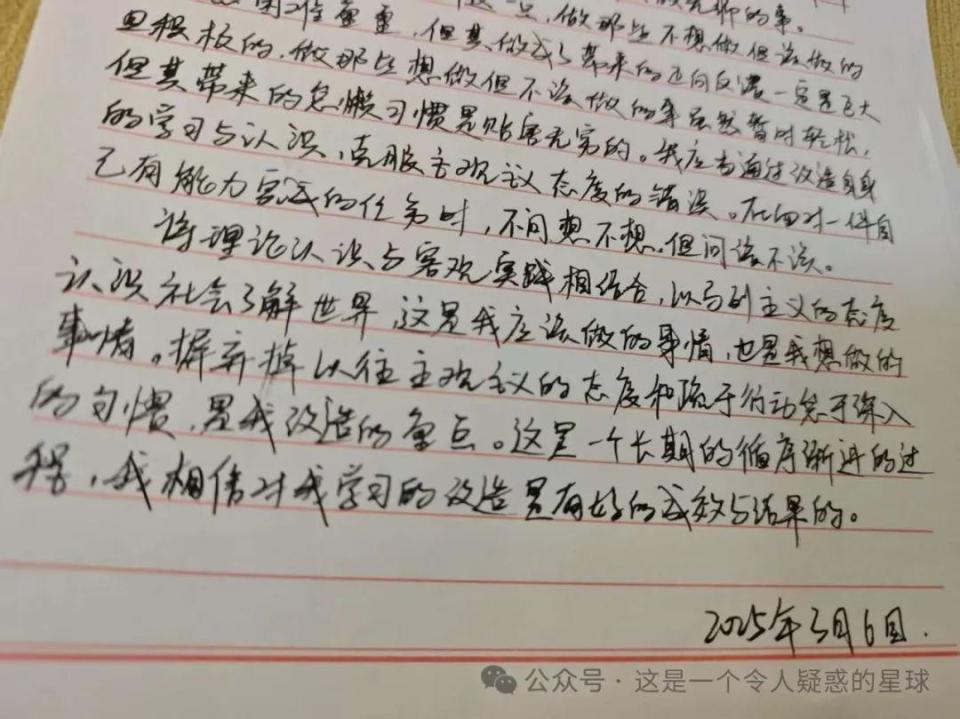 一点,做那些不想做但该做的事。
困难重重,但其做成了带来的正向反馈一定是巨大
且积极的,做那些想做但不该做的事虽然暂时轻松,
但其带来的怠懒习惯是贻害无穷的。我应当通过改造自身
的学习与认识,克服主观主义态度的错误。在面对一件自
己有能力完成的任务时,不问想不想,但问该不该。
将理论认识与客观实践相结合,以马列主义的态度
认识社会了解世界,这是我应该做的事情,也是我想做的
事情。摒弃掉以往主观主义的态度和疏于行动怠于深入
的句惯,是我改造的重点。这是一个长期的循序渐进的过
程,我相信对我学习的改造是有好的成效与结果的。
2025年3月6日.
公众号·这是一个令人疑惑的星球